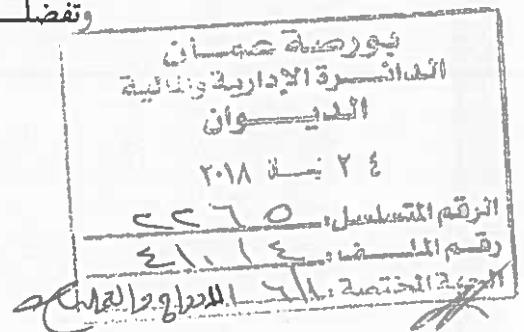 وتفضل
بورصة عمان
الدائرة الإدارية والمالية
الديوان
٢٤ نيسان ٢٠١٨
الرقم المتسلسل: ٢٢٦٥
رقم الملف: ٤١٠١٤
الجهة المختصة: